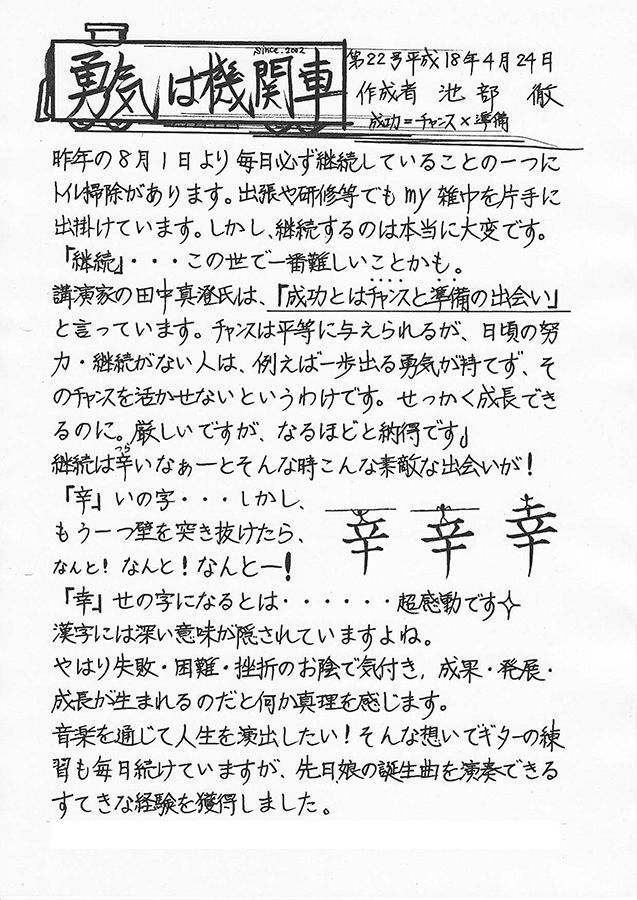 since.2002
勇気は機関車
第22号平成18年4月24日
作成者 池部 徹
成功=チャンス×準備
昨年の8月1日より毎日必ず継続していることの一つに
トイレ掃除があります。出張や研修等でもmy雑巾を片手に
出掛けています。しかし、継続するのは本当に大変です。
『継続』・・・この世で一番難しいことかも。
講演家の田中真澄氏は、『成功とはチャンスと準備の出会い』
と言っています。チャンスは平等に与えられるが、日頃の努
力・継続がない人は、例えば一歩出る勇気が持てず、そ
のチャンスを活かせないというわけです。せっかく成長でき
るのに。厳しいですが、なるほどと納得です♩
つら
継続は辛いなぁーとそんな時こんな素敵な出会いが!
『辛』いの字・・・しかし、
もう一つ壁を突き抜けたら、
辛 辛 幸
なんと!なんと!なんとー!
『幸』せの字になるとは・・・・・・超感動です
漢字には深い意味が隠されていますよね。
やはり失敗・困難・挫折のお陰で気付き,成果・発展・
成長が生まれるのだと何か真理を感じます。
音楽を通じて人生を演出したい!そんな想いでギターの練
習も毎日続けていますが、先日娘の誕生曲を演奏できる
すてきな経験を獲得しました。